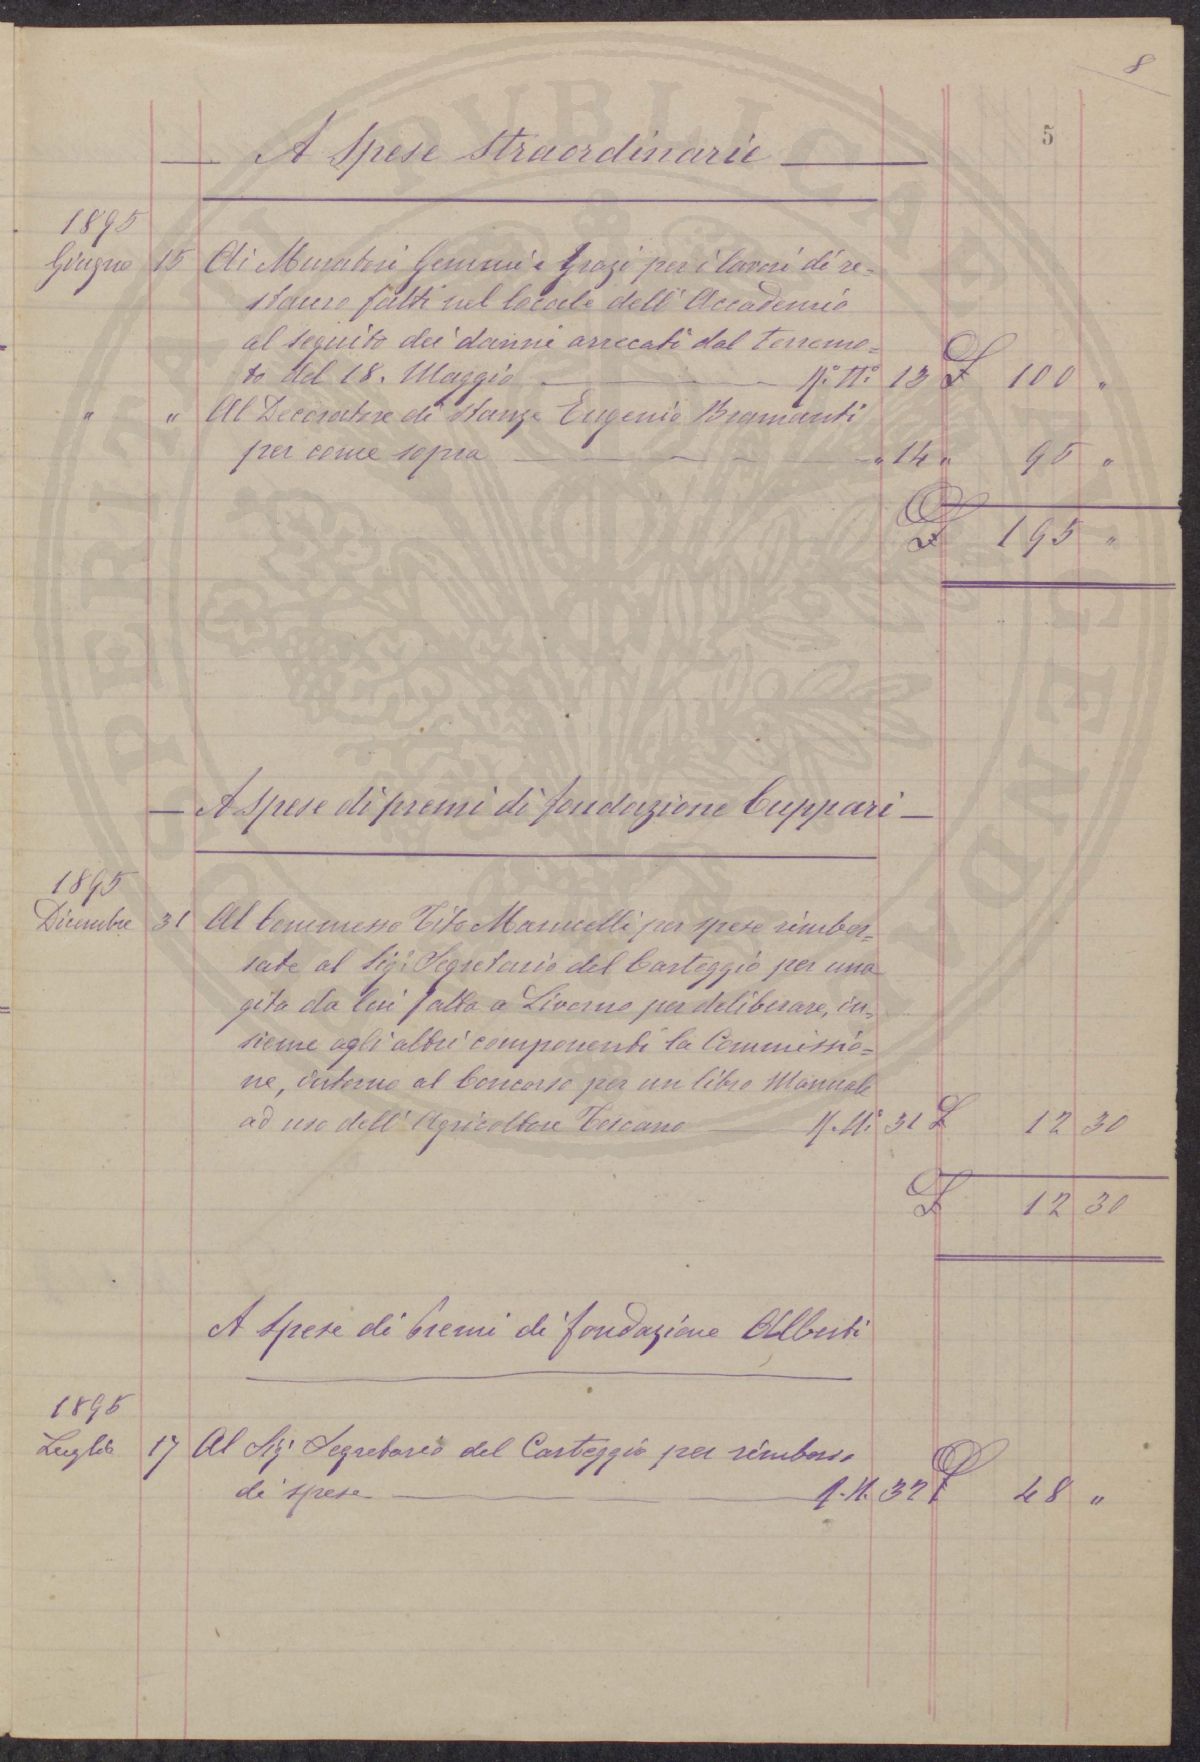 8
5
A Spese Straordinarie
1895
Giugno 15 Ai Muratori Gemmi e Grazi per i lavori di re=
stauro fatti nel locale dell'Accademia
al seguito dei danni arrecati dal terremo=
to del 18. Maggio 13 £ 100 "
" " Al Decoratore di stanze Eugenio Bramanti
per come sopra " 14 " 95 "
£ 195 "
A Spese di premi di fondazione Cuppari
1895
Dicembre 31 Al Commesso Tito Marucelli per spese rimbor=
sate al Sig: Segretario del Carteggio per una
gita da lui fatta a Livorno per deliberare, in=
sieme agli altri componenti la Commissio=
ne, intorno al Concorso per un libro Manuale
ad uso dell'Agricoltore Toscano 31 £ 12 30
£ 12 30
A Spese di Premi di fondazione Alberti
1895
Luglio 17 Al Sig: Segretario del Carteggio per rimborso
di spese 32 £ 48 "
PUBLICAE